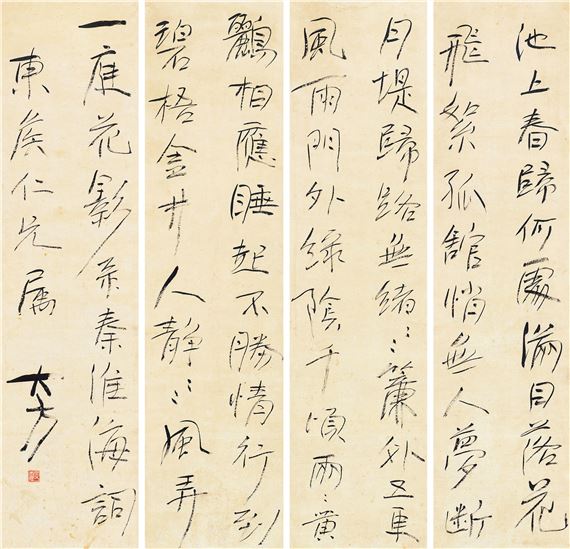 池上春歸何處滿目落花
飛絮孤館悄無人夢斷
月堤歸路無緒〻簾外五更
風雨門外綠陰千頃兩〻黃
鸝相應睡起不勝情行到
碧梧金井人靜〻風弄
一庭花影秦淮海詞
東矦仁兄属